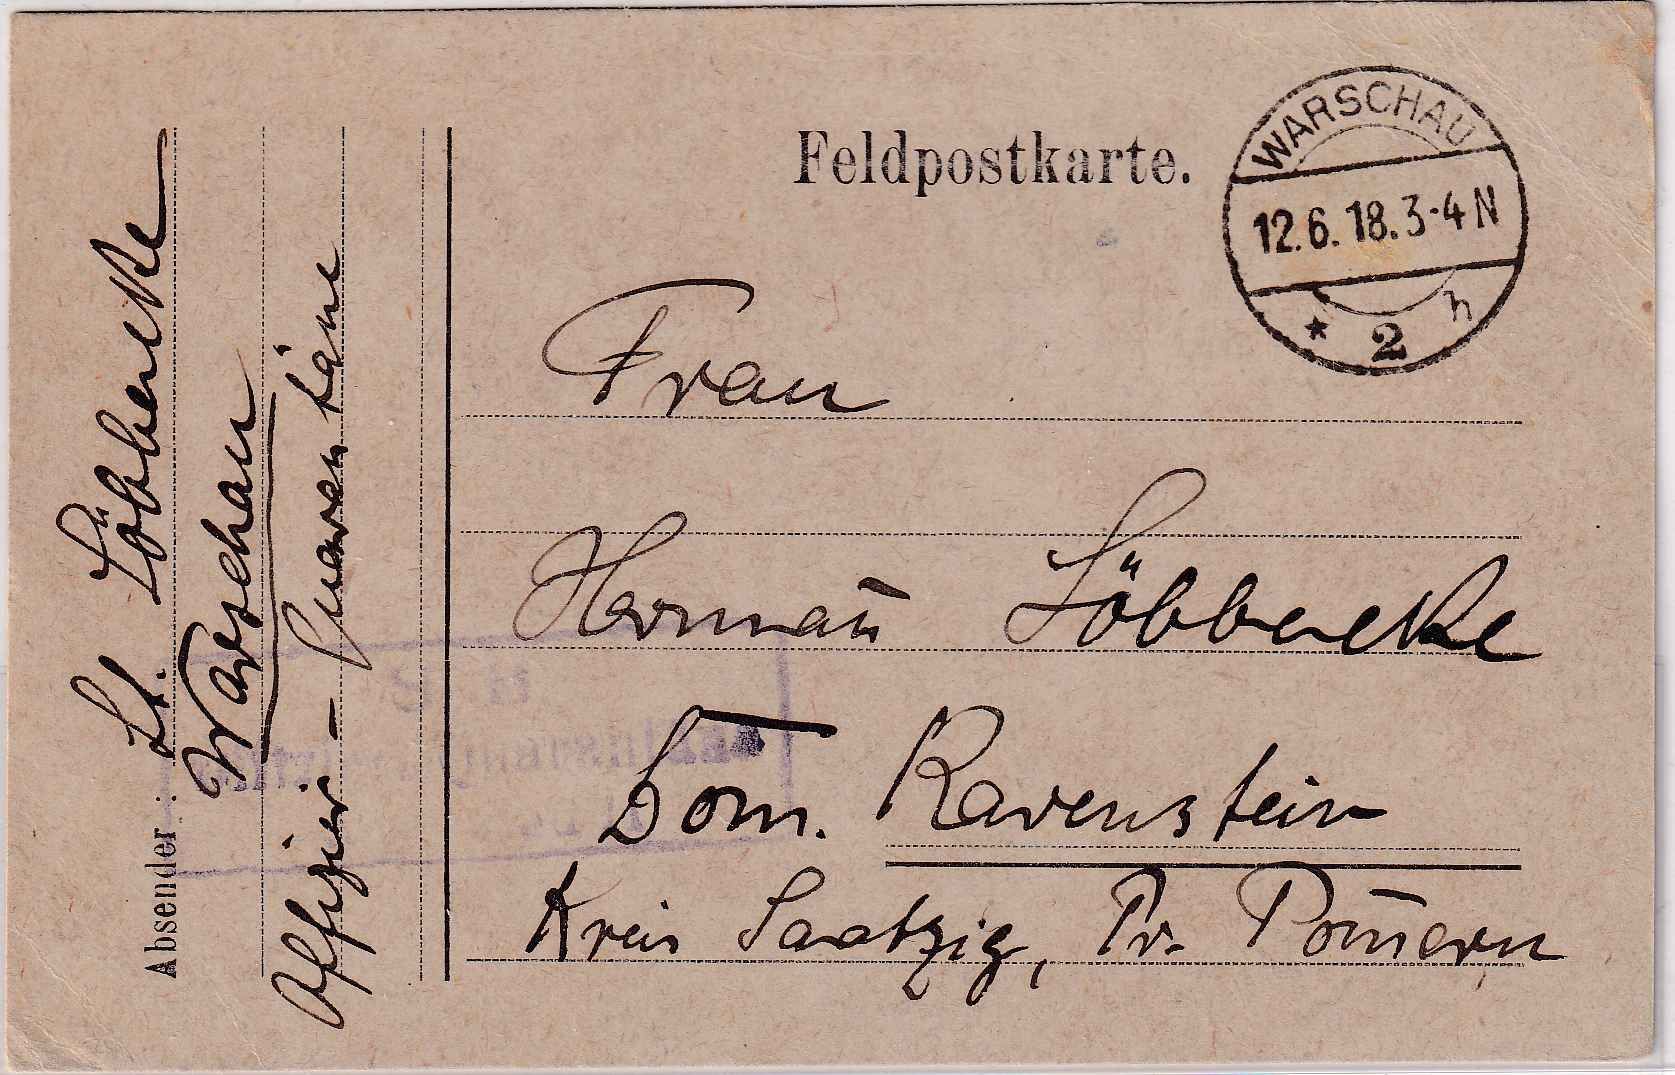 Feldpostkarte.
WARSCHAU
12.6.18.3-4N
* 2 h
Frau
Herman̄ Löbbecke
Dom. Ravenstein
Kreis Saatzig, Pr. Pom̄ern
Absender: Lt. Löbbecke
Warschau
Offizier-Quarentäne